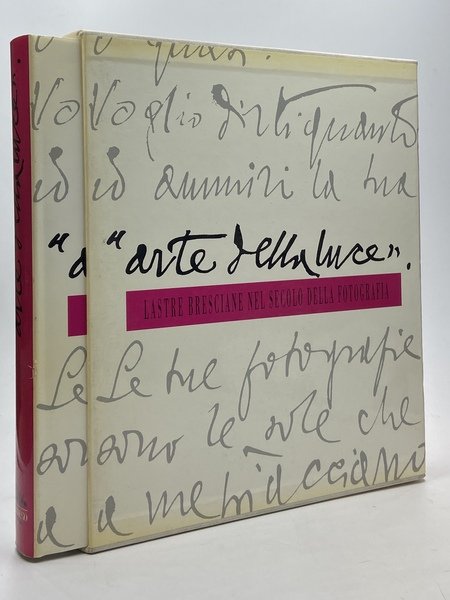 Voglio dirti quanto
ed ammiri la tua
"arte della luce".
LASTRE BRESCIANE NEL SECOLO DELLA FOTOGRAFIA
Le tue fotografie
sono le sole che
a me piacciano
"arte della luce".